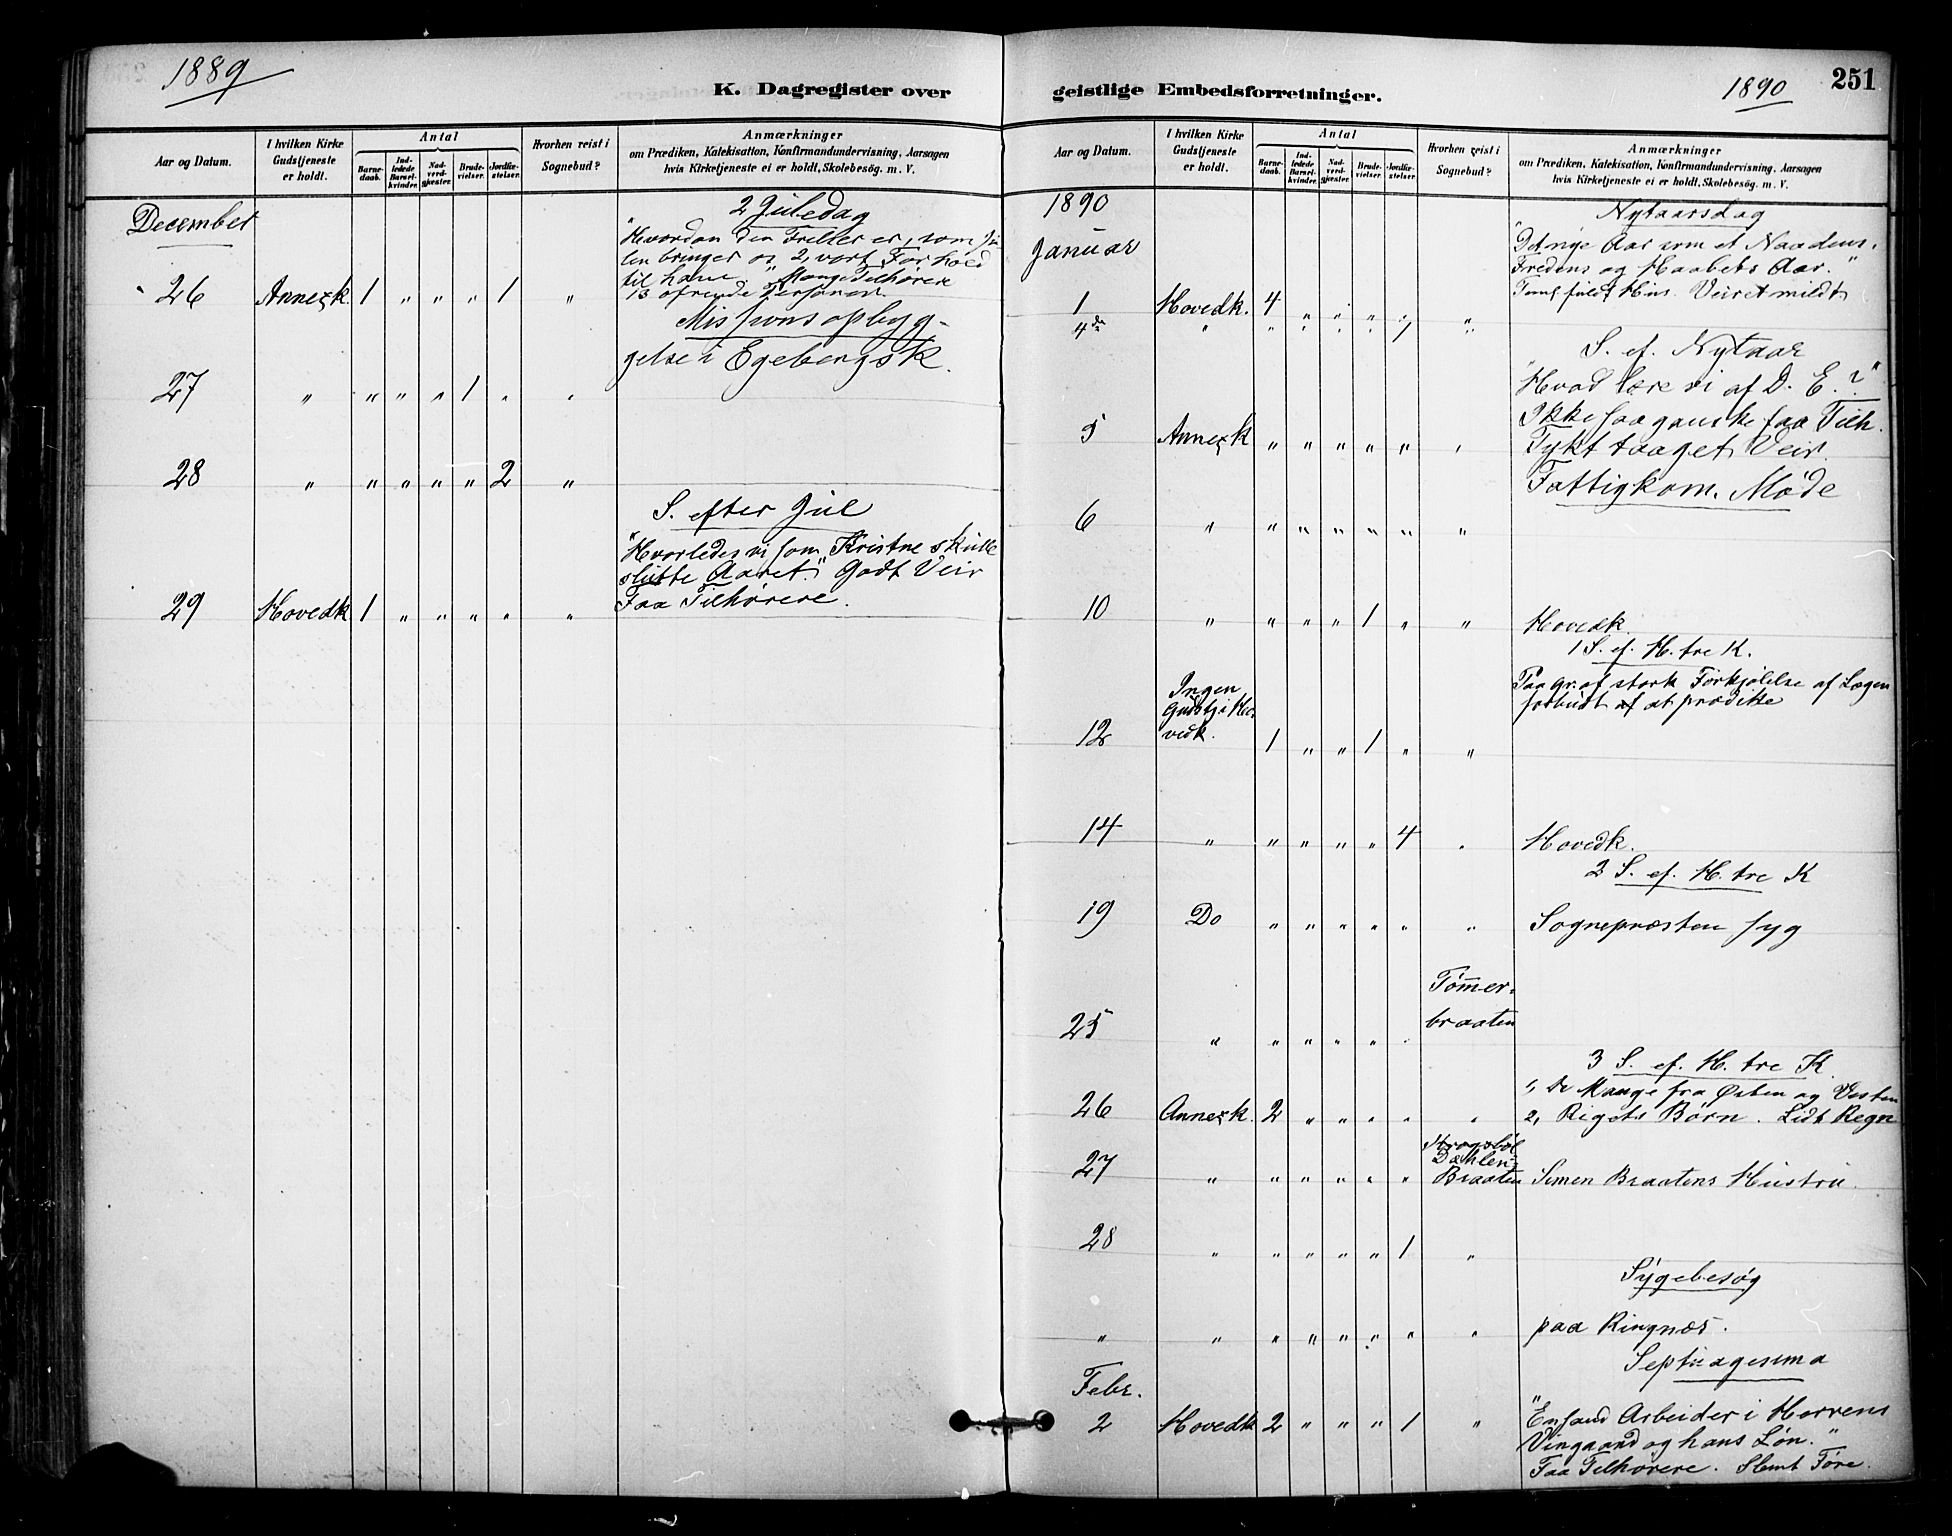 1889
K. Dagregister over
Aar og Datum.
I hvilken Kirke Gudstjeneste er holdt.
Antal
Barne-daab.
Ind-ledede Barsel-kvinder.
Nad-verd-gjæster.
Brude-vielser.
Jordfæ-stelser.
Hvorhen reist i Sognebud?
Anmærkninger
om Prædiken, Katekisation, Konfirmandundervisning, Aarsagen
hvis Kirketjeneste ei er holdt, Skolebesøg. m. V.
December
2 Juledag
"Hvordan den Frelser er, som Ju
len bringer os 2, vort Forhold
til ham" Mange Tilhørere
13 ofrende Personer.
26 Annexk. 1 " " " 1 "
Missionsopbyg-
gelse i Egebergsk.
27 " " " " 1 " "
28 " " " " " 2 "
S. efter Jul
"Hvorledes vi som Kristne skulle
slutte Aaret." Godt Veir
Faa Tilhørere.
29 Hovedk 1 " " " " "
geistlige Embedsforretninger.
1890
251
Aar og Datum.
I hvilken Kirke Gudstjeneste er holdt.
Antal
Barne-daab.
Ind-ledede Barsel-kvinder.
Nad-verd-gjæster.
Brude-vielser.
Jordfæ-stelser.
Hvorhen reist i Sognebud?
Anmærkninger
om Prædiken, Katekisation, Konfirmandundervisning, Aarsagen
hvis Kirketjeneste ei er holdt, Skolebesøg. m. V.
1890
Januar
Nytaarsdag
"Det nye Aar som et Naadens,
Fredens og Haabets Aar."
fuldt Hus. Veiret mildt
1 Hovedk. 4 " " " " "
4de " " " " " 1 "
S. ef. Nytaar
"Hvad lære vi af D. E.?"
Ikke saa ganske faa Tilh.
Tykt taaget Veir.
5 Annexk " " " " " "
Fattigkom. Møde
6 " " " " " " "
10 " " " " 1 " " Hovedk.
1 S. ef. H. tre K.
Paa Gr. af stærk Forkjølelse af Lægen
forbudt af at prædike
12 Ingen Gudstj i Hovedk. 1 " " 1 " "
14 " " " " " 4 " Hovedk.
2 S. ef. H. tre K
19 Do " " " " " " Sognepræsten syg
25 " " " " " " Tømmer-
braaten
3 S. ef. H. tre K.
1, De Mange fra Østen og Vesten
2, Rigets Børn. Lidt Regn
26 Annexk. 2 " " " " "
27 " " " " " " Dæhlen-
Braaten Simen Braatens Hustru.
28 " " " " " 1 "
Sygebesøg
" " " " " " " " paa Ringnæs.
Septuagesima
Febr.
2 Hovedk 2 " " " 1 "
"En sand Arbeider i Herrens
Vingaard og hans Løn."
Faa Tilhørere. Slemt Føre.